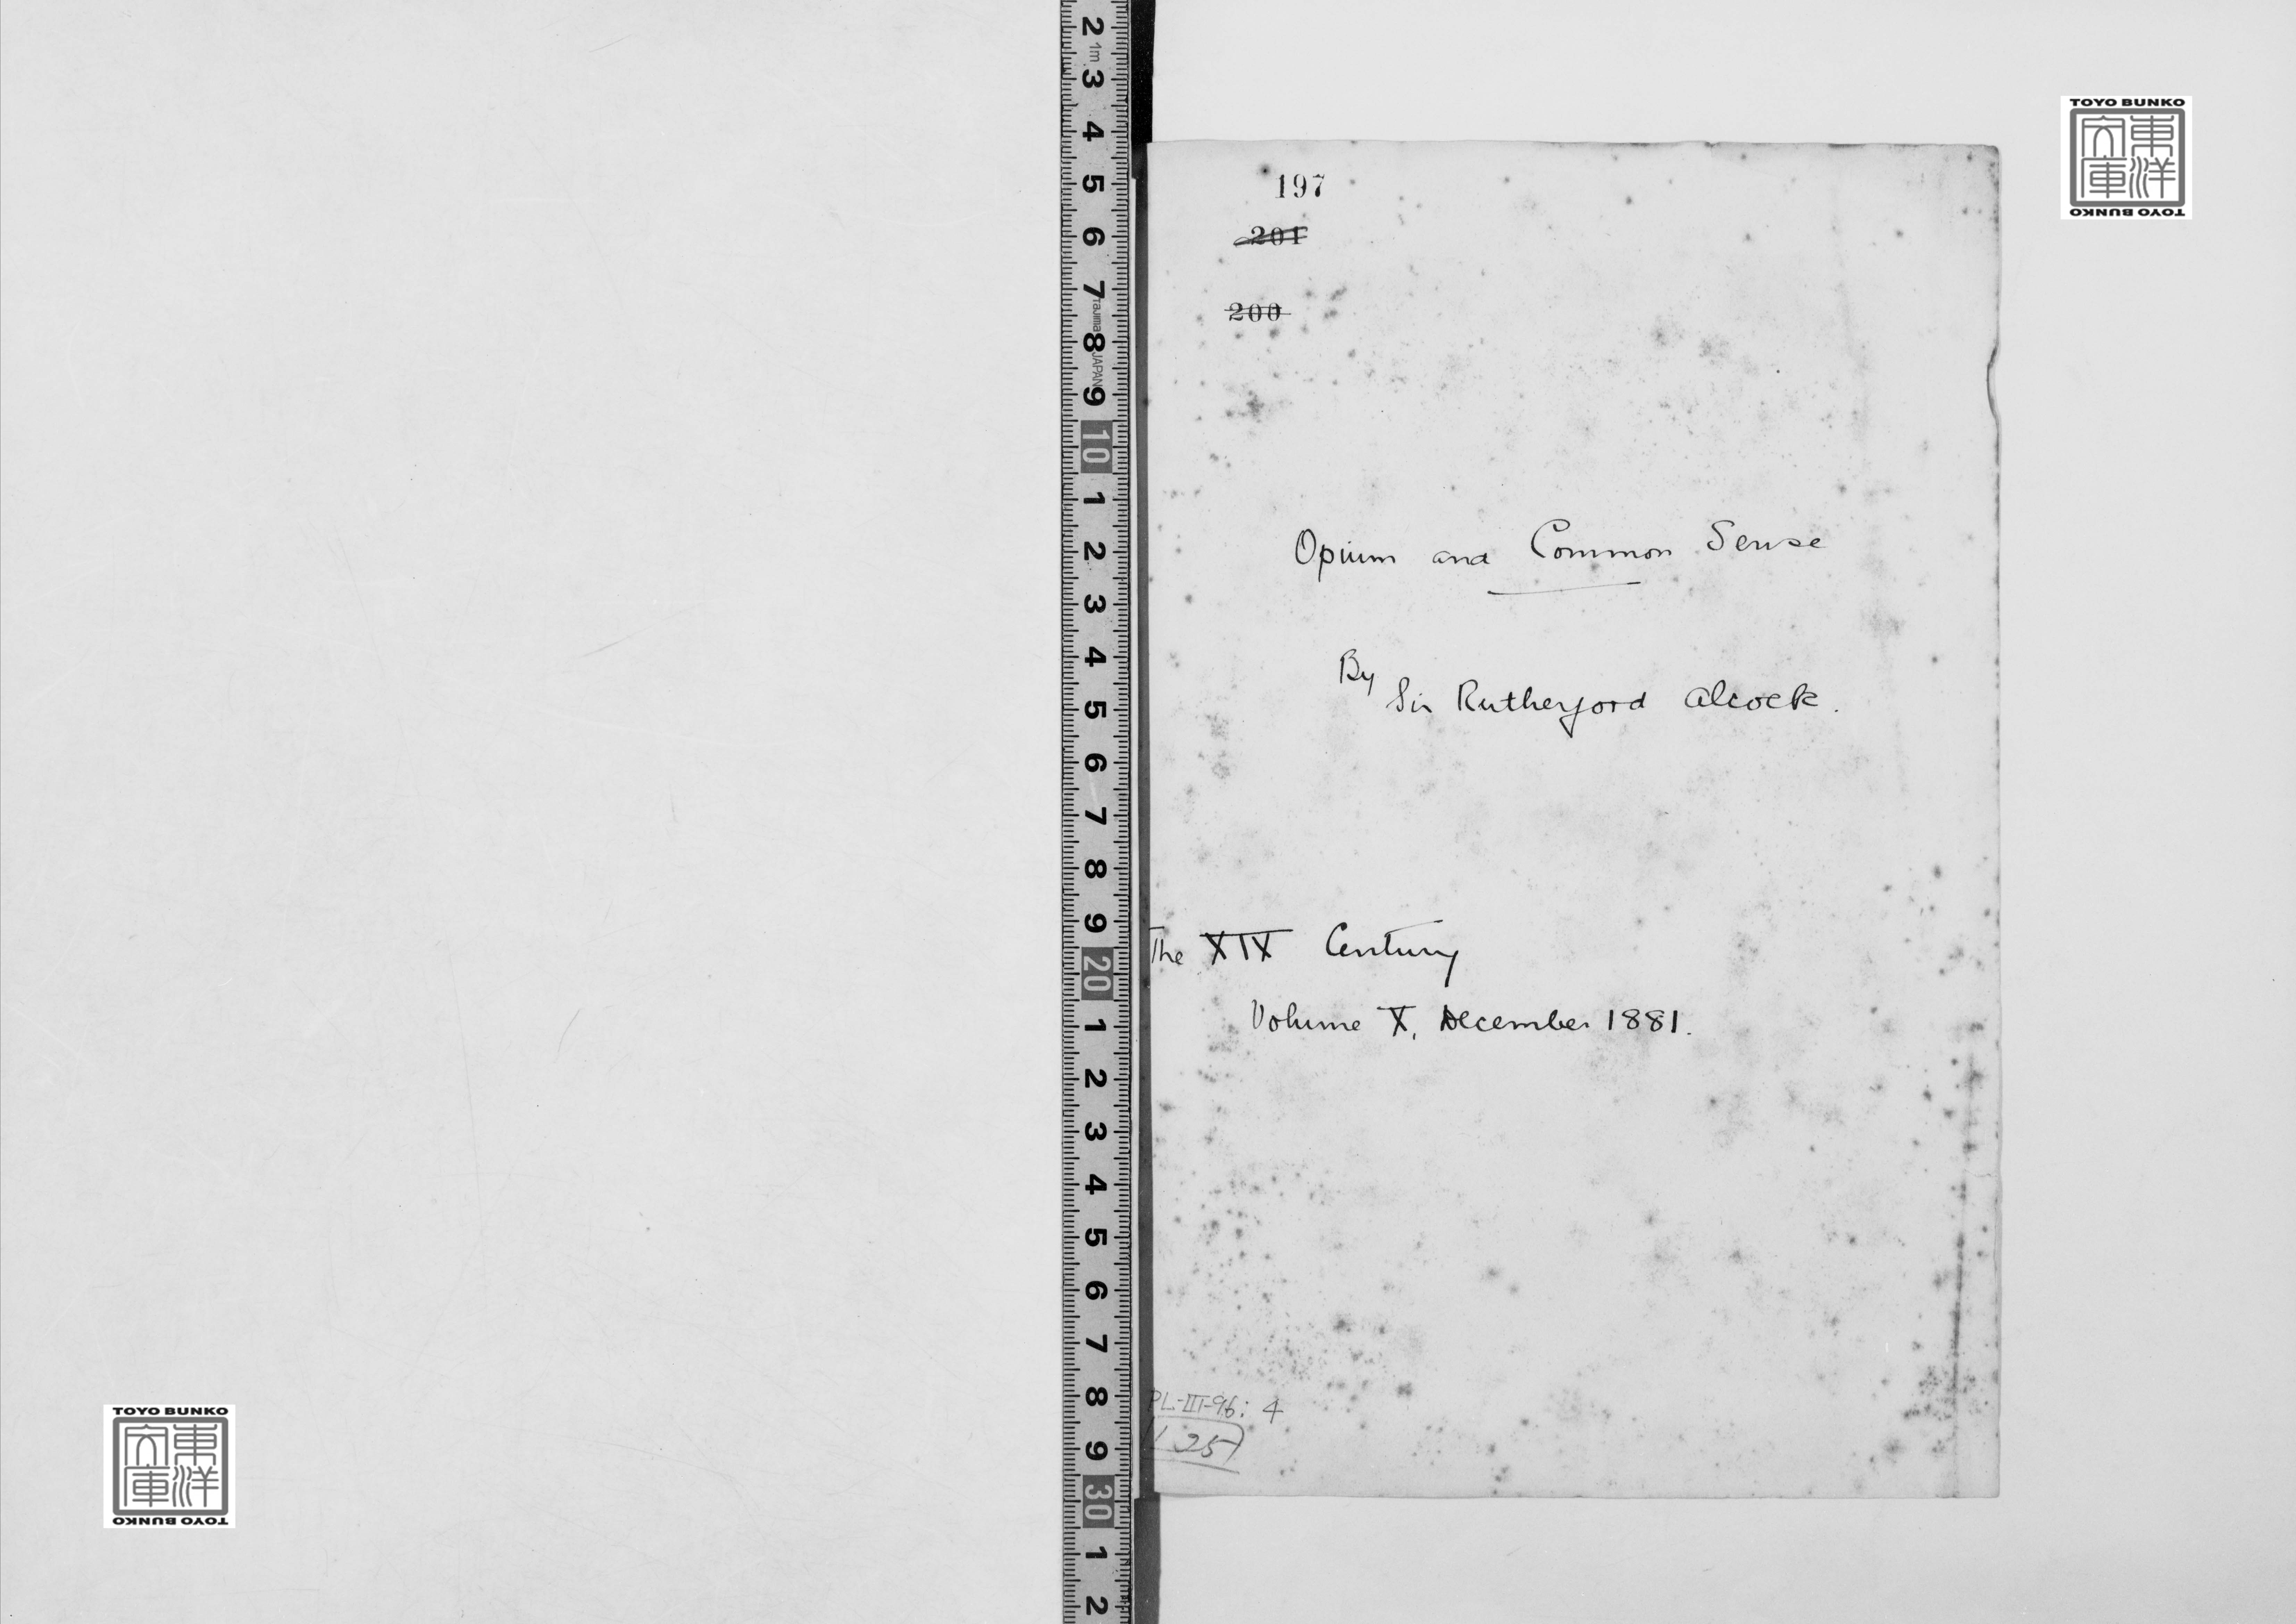 197
201
200
Opium and Common Sense
By
Sir Rutherford Alcock.
The XIX Century
Volume X, December 1881.
PL-III-96: 4
125
TOYO BUNKO
東洋
文庫
TOYO BUNKO
TOYO BUNKO
東洋
文庫
TOYO BUNKO
2
1m
3
4
5
6
7
Tajima
8
JAPAN
9
10
1
2
3
4
5
6
7
8
9
20
1
2
3
4
5
6
7
8
9
30
1
2